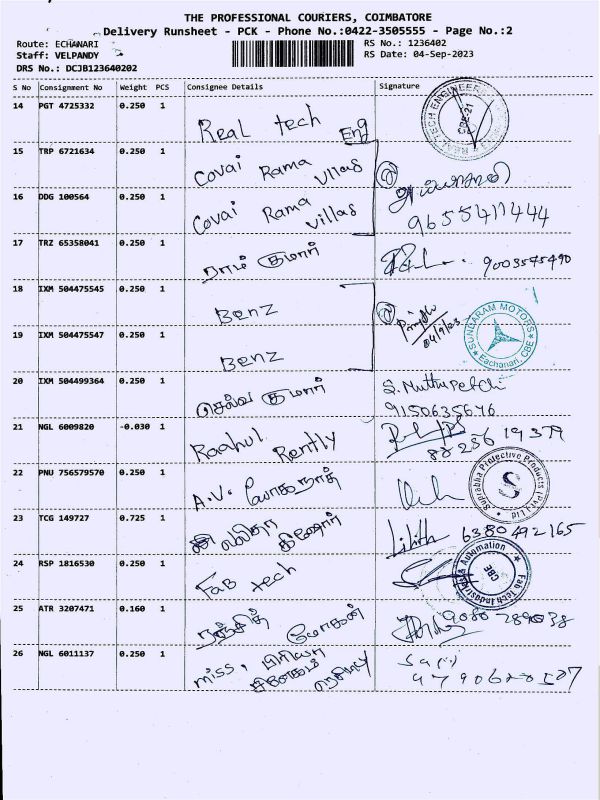 THE PROFESSIONAL COURIERS, COIMBATORE
Delivery Runsheet - PCK - Phone No.:0422-3505555 - Page No.:2
Route: ECHANARI RS No.: 1236402
Staff: VELPANDY RS Date: 04-Sep-2023
DRS No.: DCJB123640202
S No Consignment No Weight PCS Consignee Details Signature
14 PGT 4725332 0.250 1 Real tech Eng
REAL TECH ENGINEE CBE-21
15 TRP 6721634 0.250 1 Covai Rama Villas
16 DDG 100564 0.250 1 Covai Rama Villas
9655411444
17 TRZ 65358041 0.250 1 ராம் குமார் 9003545490
18 IXM 504475545 0.250 1 Benz
04/9/23
SUNDARAM MOTORS Eachanari, CBE
19 IXM 504475547 0.250 1 Benz
20 IXM 504499364 0.250 1 செல்வ குமார் S. Muthupetchi
9150635676
21 NGL 6009820 -0.030 1 Raahul Rently
22 PNU 756579570 0.250 1 A.V. யோகநாத்
Suprabha Protective Products (Pvt) Ltd S
23 TCG 149727 0.725 1 லலிதா கிஷோர் Lilith 6380492165
24 RSP 1816530 0.250 1 Fab tech
Fab Tech Industries & Automation CBE
25 ATR 3207471 0.160 1 ரஞ்சித் மோகன் 9080289038
26 NGL 6011137 0.250 1 miss. பிரியா